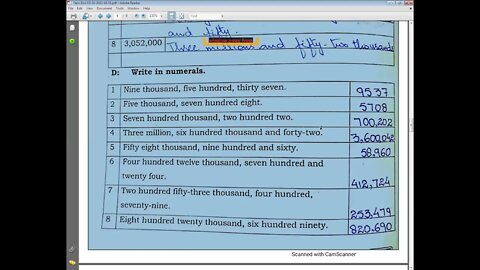 and fifty.
8 3,052,000 Three millions and fifty-two thousands
D: Write in numerals.
1 Nine thousand, five hundred, thirty seven. 9537
2 Five thousand, seven hundred eight. 5708
3 Seven hundred thousand, two hundred two. 700,202
4 Three million, six hundred thousand and forty-two. 3,600,042
5 Fifty eight thousand, nine hundred and sixty. 58,960
6 Four hundred twelve thousand, seven hundred and
twenty four. 412,724
7 Two hundred fifty-three thousand, four hundred,
seventy-nine. 253,479
8 Eight hundred twenty thousand, six hundred ninety. 820,690
Scanned with CamScanner